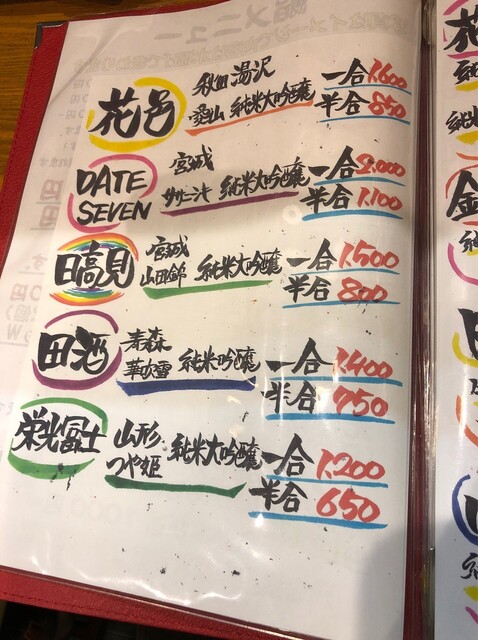 花邑
秋田 湯沢
愛山 純米大吟醸
一合 1.600
半合 850
DATE
SEVEN
宮城
ササニシキ 純米大吟醸
一合 2.000
半合 1.100
日高見
宮城
山田錦 純米大吟醸
一合 1.500
半合 800
田酒
青森
華吹雪 純米吟醸
一合 1.400
半合 750
栄光冨士
山形
つや姫 純米大吟醸
一合 1.200
半合 650